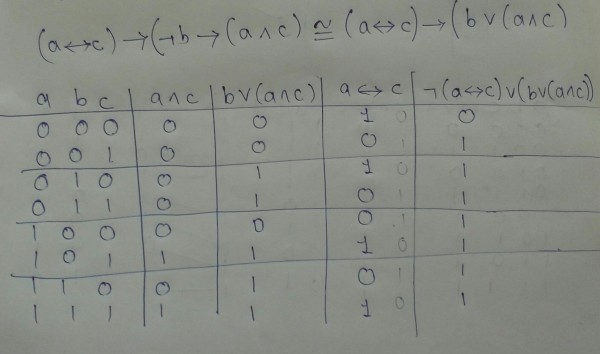 (a↔c)→(¬b→(a∧c) ≅ (a↔c)→(b∨(a∧c)
a b c a∧c b∨(a∧c) a↔c ¬(a↔c)∨(b∨(a∧c))
0 0 0 0 0 1 0 0
0 0 1 0 0 0 1 1
0 1 0 0 1 1 0 1
0 1 1 0 1 0 1 1
1 0 0 0 0 0 1 1
1 0 1 1 1 1 0 1
1 1 0 0 1 0 1 1
1 1 1 1 1 1 0 1